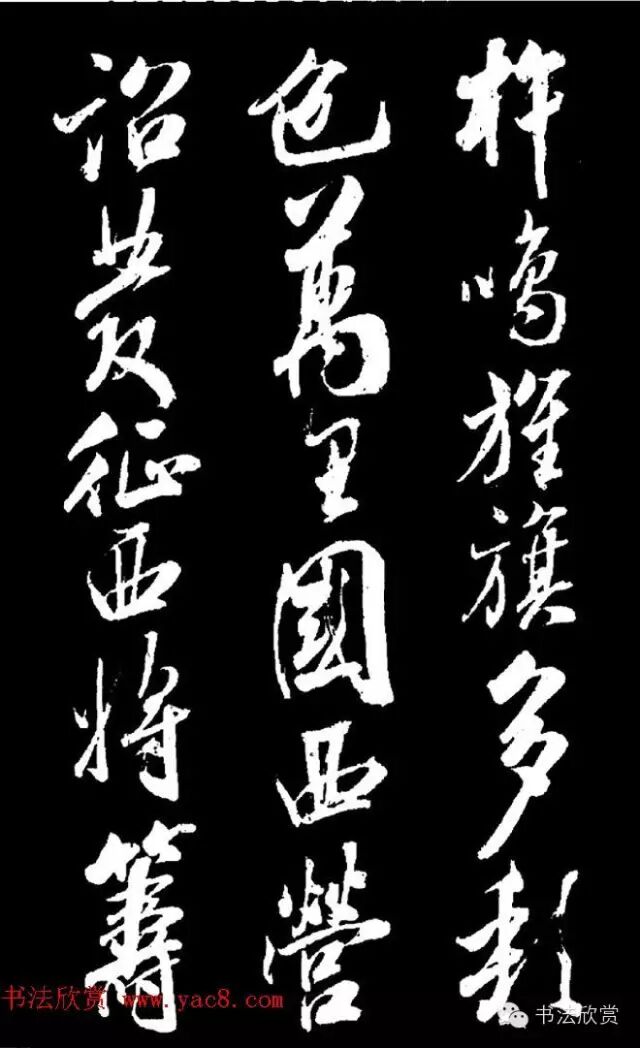 柝鳴旌旗多彩
色萬里國西營
詔發征西將籌
书法欣赏 www.yac8.com
书法欣赏